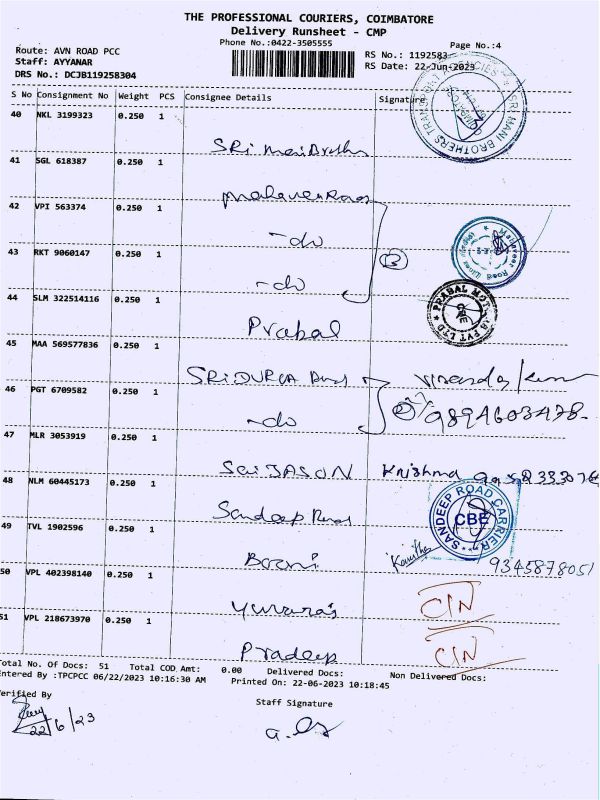 THE PROFESSIONAL COURIERS, COIMBATORE
Delivery Runsheet - CMP
Phone No.:0422-3505555
Page No.:4
Route: AVN ROAD PCC
RS No.: 1192583
Staff: AYYANAR
RS Date: 22-Jun-2023
DRS No.: DCJB119258304
S No Consignment No Weight PCS Consignee Details Signature
40 NKL 3199323 0.250 1
41 SGL 618387 0.250 1
42 VPI 563374 0.250 1
-do
43 RKT 9060147 0.250 1
-do
44 SLM 322514116 0.250 1
Prabal
45 MAA 569577836 0.250 1
SRI DURGA
46 PGT 6709582 0.250 1
-do 9894603478
47 MLR 3053919 0.250 1
Sri JASON Krishna
48 NLM 60445173 0.250 1
Sandeep Road
49 TVL 1902596 0.250 1
9345878051
50 VPL 402398140 0.250 1
Yuvaraj CIN
51 VPL 218673970 0.250 1
Pradeep CIN
SRI MANI BROTHERS TRANSPORT AGENCIES
Mahaveer Road Lines
PRABAL MOTORS PVT LTD
SANDEEP ROAD CARRIER
CBE
Total No. Of Docs: 51 Total COD Amt: 0.00 Delivered Docs: Non Delivered Docs:
Entered By :TPCPCC 06/22/2023 10:16:30 AM Printed On: 22-06-2023 10:18:45
Verified By
Staff Signature
22/6/23